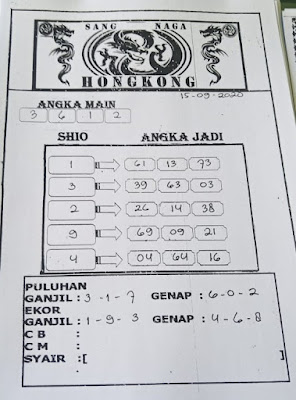 SANG NAGA
HONGKONG
15-09-2020
ANGKA MAIN
3 6 1 2
SHIO ANGKA JADI
1 61 13 73
3 39 63 03
2 26 14 38
9 69 09 21
4 04 64 16
PULUHAN
GANJIL : 3-1-7 GENAP : 6-0-2
EKOR
GANJIL : 1-9-3 GENAP : 4-6-8
C B :
C M :
SYAIR :[ ]
: